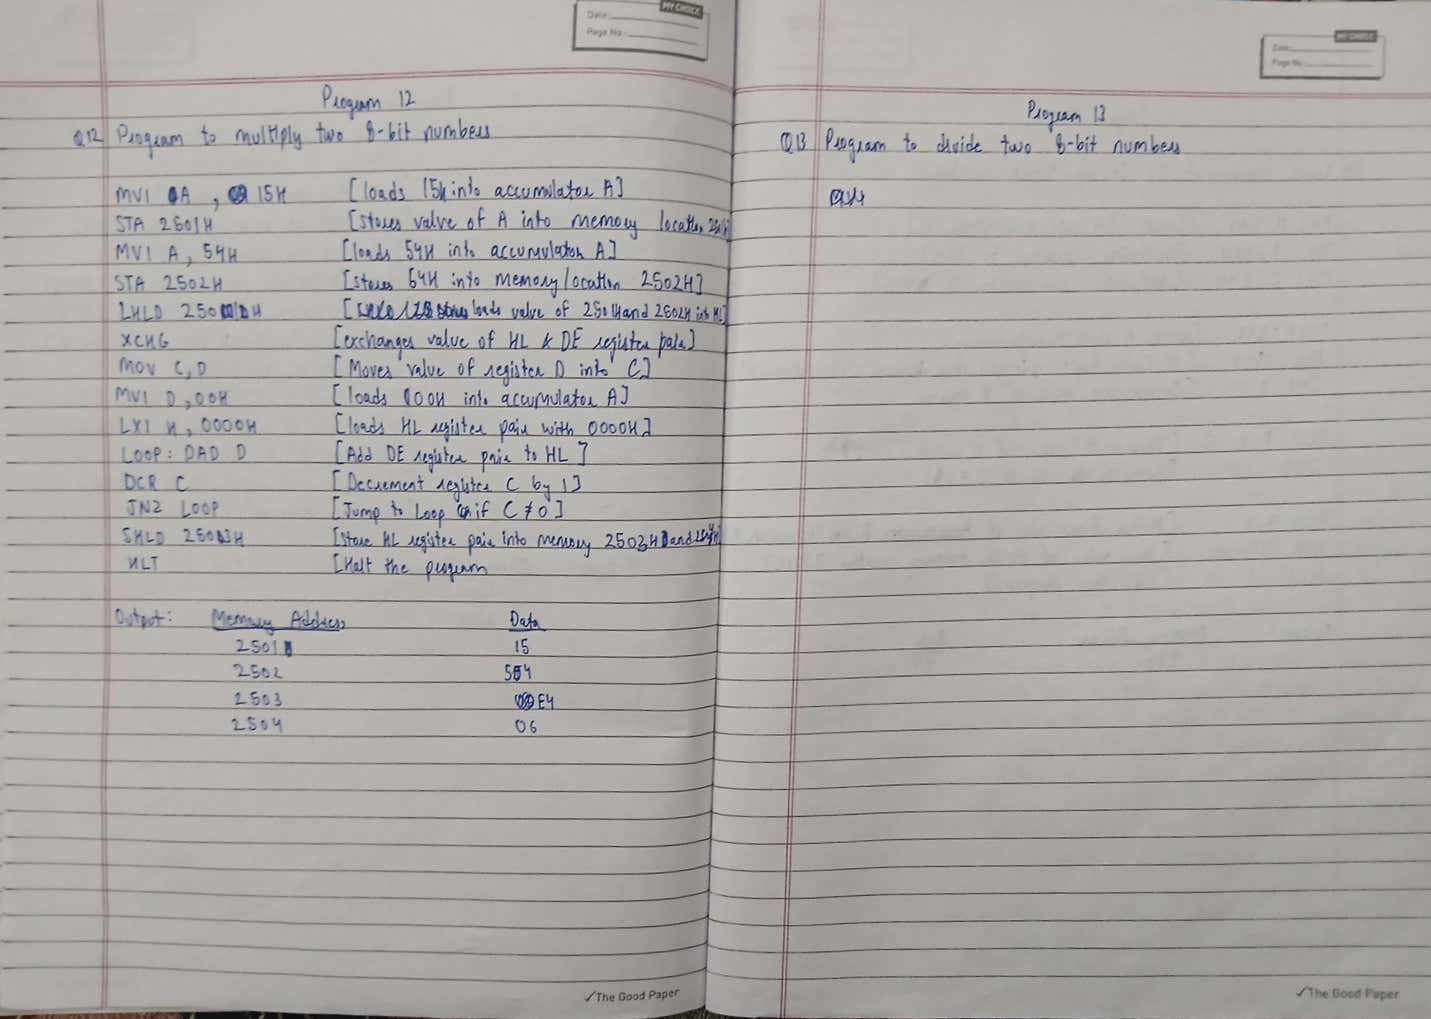 MY CHOICE
Date:
Page No:
Program 12
Q12 Program to multiply two 8-bit numbers
MVI A, 15H [loads 15H into accumulator A]
STA 2501H [stores value of A into memory location
MVI A, 54H [loads 54H into accumulator A]
STA 2502H [stores 54H into memory location 2502H]
LHLD [loads value of 2501H and 2502H into HL]
XCHG [exchanges value of HL & DE register pair]
MOV C, D [Moves value of register D into C]
MVI D, 00H [loads 00H into accumulator A]
LXI H, 0000H [loads HL register pair with 0000H]
LOOP: DAD D [Add DE register pair to HL]
DCR C [Decrement register C by 1]
JNZ LOOP [Jump to Loop if C ≠ 0]
SHLD 2503H [Store HL register pair into memory 2503H and
HLT [Halt the program
Output: Memory Address Data
2501 15
2502 54
2503 E4
2504 06
✓The Good Paper
MY CHOICE
Date:
Page No:
Program 13
Q13 Program to divide two 8-bit numbers
✓The Good Paper